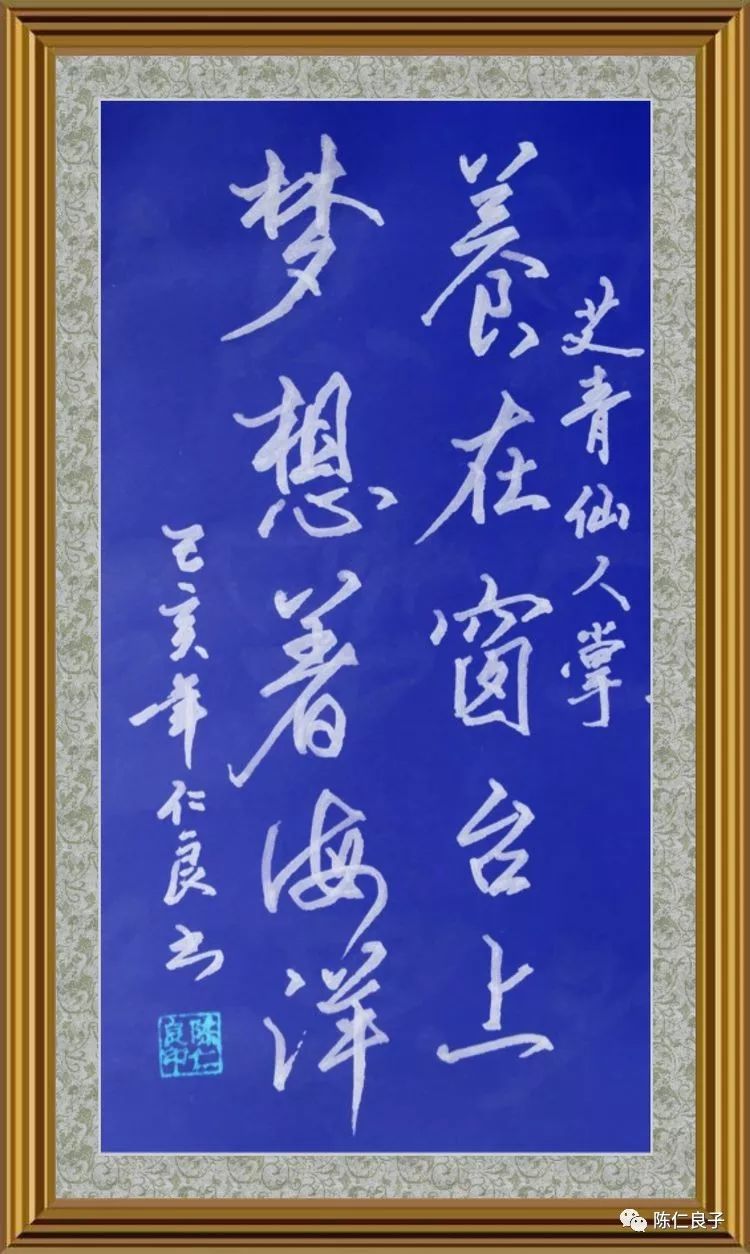 艾青仙人掌
養在窗台上
梦想着海洋
己亥年仁良书
陈仁良印
陈仁良子